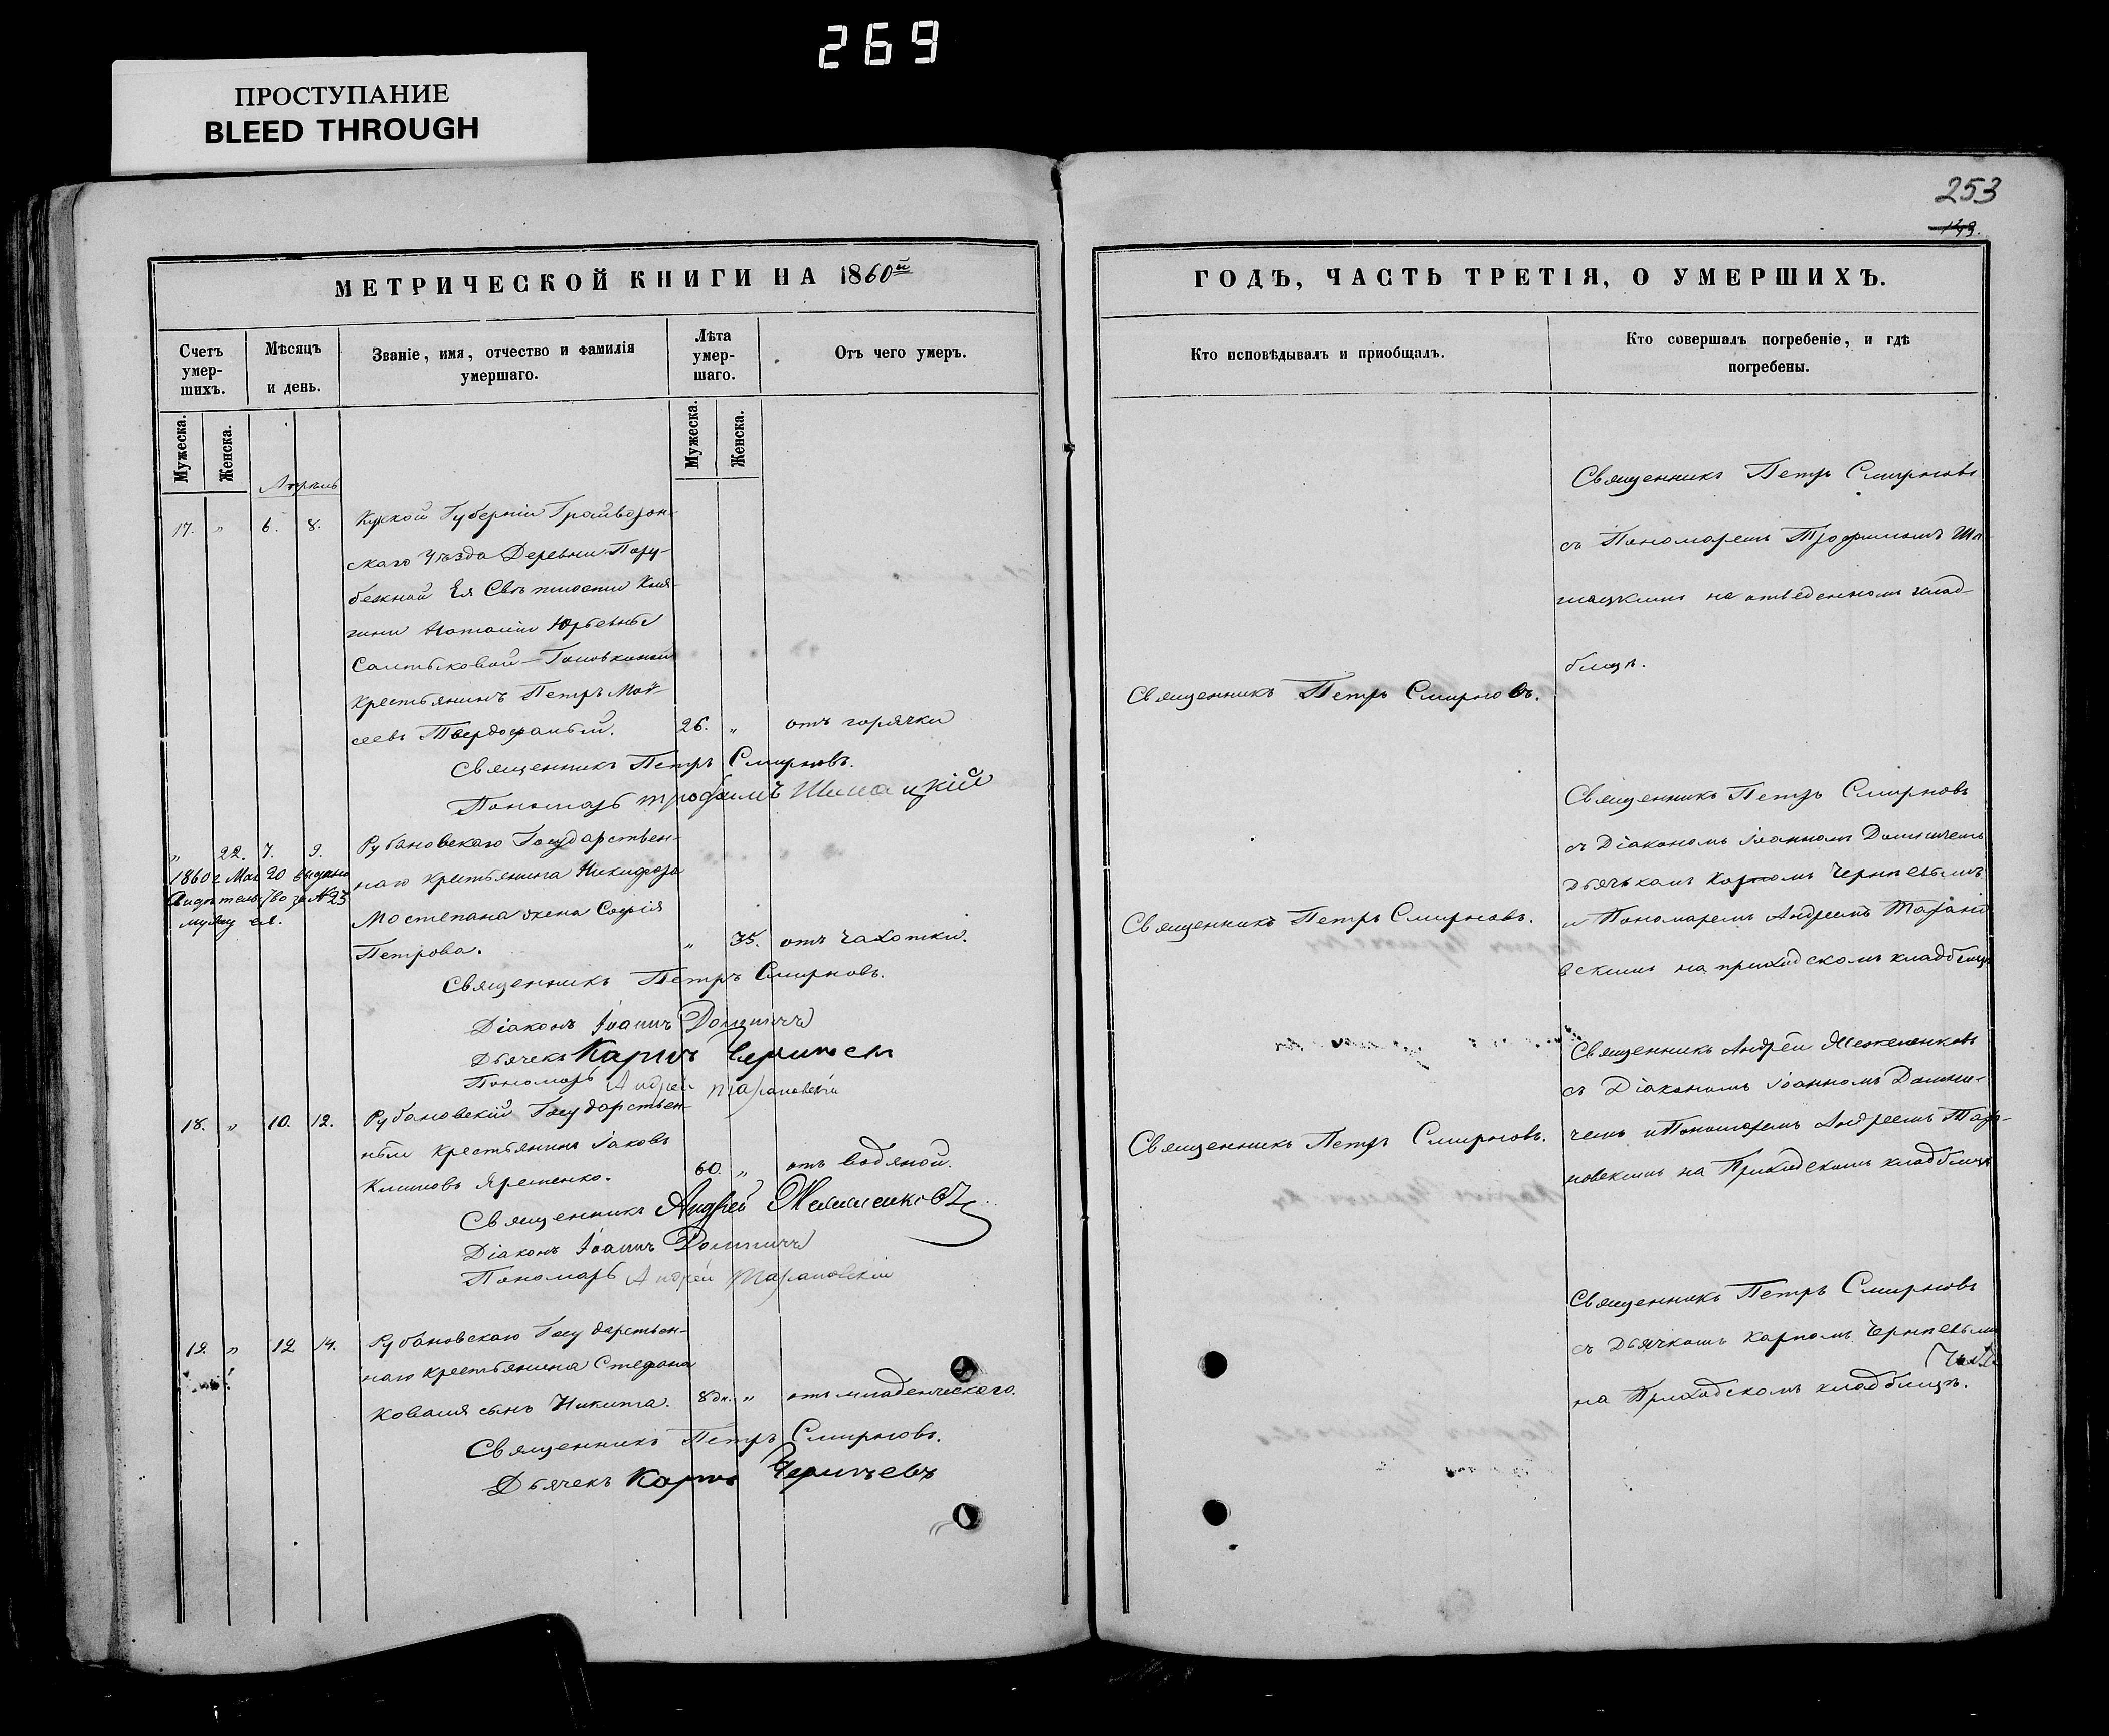 269
ПРОСТУПАНИЕ
BLEED THROUGH
253
МЕТРИЧЕСКОЙ КНИГИ НА 1860й
Счетъ умер-шихъ.
Мѣсяцъ и день.
Званіе, имя, отчество и фамилія умершаго.
Лѣта умер-шаго.
Отъ чего умеръ.
Мужеска.
Женска.
Мужеска.
Женска.
Апрель
17. „ 6. 8. Курской Губерніи Грайворон-
скаго Уѣзда Деревни
Ея Свѣтлости Кня-
гини Наталіи Юрьевны
Салтыковой-Головкиной
Крестьянинъ Петръ Мой-
сеевъ 26. „ отъ горячки
Священникъ Петръ Смирновъ.
Пономарь Трофимъ
„ 22. 7. 9. Рубановскаго Государствен-
наго крестьянина Никифора
Мостепана жена Софія
Петрова. „ 35. отъ чахотки.
1860 г. Мая 20 выдано
Свидѣтельство за №23
мужу ея.
Священникъ Петръ Смирновъ.
Діаконъ Іоаннъ
Дьячекъ Карпъ
Пономарь Андрей Тарановскій
18. „ 10. 12. Рубановскій Государствен-
ный крестьянинъ Іаковъ
Климовъ Яременко. 60. „ отъ водяной.
Священникъ Андрей
Діаконъ Іоаннъ
Пономарь Андрей Тарановскій
19. „ 12 14. Рубановскаго Государствен-
наго крестьянина Стефана
Коваля сынъ Никита. 8 дн. „ отъ младенческаго.
Священникъ Петръ Смирновъ.
Дьячекъ Карпъ
ГОДЪ, ЧАСТЬ ТРЕТІЯ, О УМЕРШИХЪ.
Кто исповѣдывалъ и пріобщалъ.
Кто совершалъ погребеніе, и гдѣ
погребены.
Священникъ Петръ Смирновъ.
Священникъ Петръ Смирновъ
съ Пономаремъ Трофимомъ
на отведенномъ клад-
бищѣ.
Священникъ Петръ Смирновъ.
Священникъ Петръ Смирновъ
съ Діакономъ Іоанномъ
Дьячкомъ Карпомъ
и Пономаремъ Андреемъ Тарано
вскимъ на приходскомъ кладбищѣ
Священникъ Петръ Смирновъ.
Священникъ Андрей
съ Діакономъ Іоанномъ
и Пономаремъ Андреемъ Тара-
новскимъ на Приходскомъ кладбищѣ
Священникъ Петръ Смирновъ
съ Дьячкомъ Карпомъ
на Приходскомъ кладбищѣ.